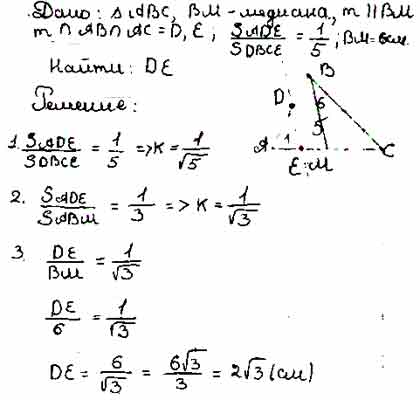 Дано: ΔABC, BM - медиана, m || BM
m ∩ AB ∩ AC = D, E; SADE/SDBCE = 1/5; BM=6см.
Найти: DE
Решение:
1. SADE/SDBCE = 1/5 => K = 1/√5
2. SADE/SABM = 1/3 => K = 1/√3
3. DE/BM = 1/√3
DE/6 = 1/√3
DE = 6/√3 = 6√3/3 = 2√3 (см)
B
D
6
5
A 1
E M C